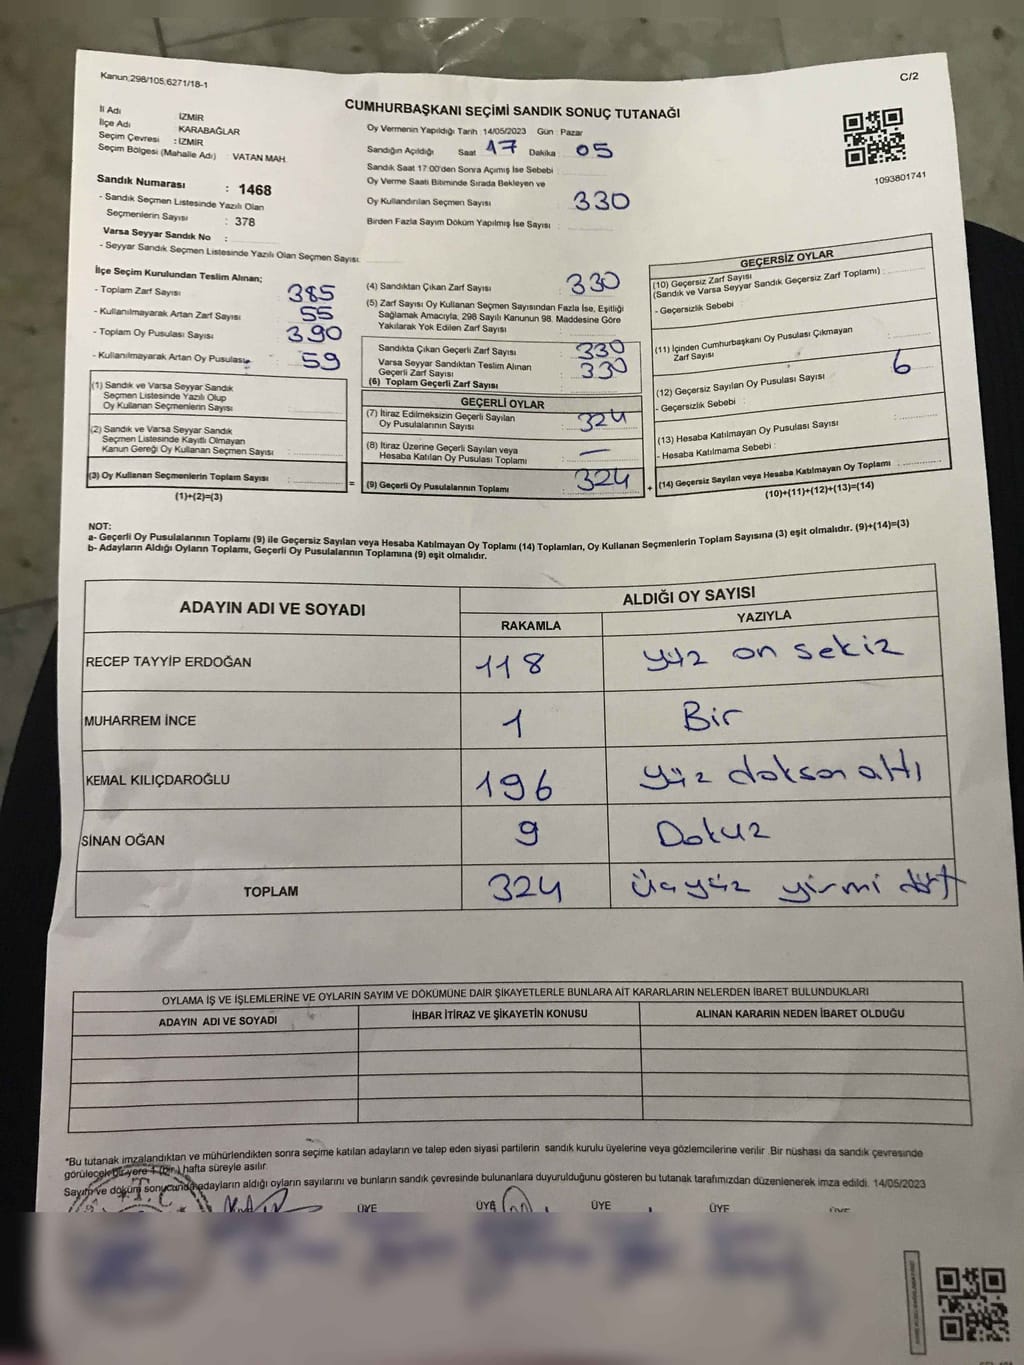 Kanun;298/105;6271/18-1
C/2
CUMHURBAŞKANI SEÇİMİ SANDIK SONUÇ TUTANAĞI
İl Adı : İZMİR
İlçe Adı : KARABAĞLAR
Seçim Çevresi : İZMİR
Seçim Bölgesi (Mahalle Adı) : VATAN MAH.
Sandık Numarası : 1468
- Sandık Seçmen Listesinde Yazılı Olan
Seçmenlerin Sayısı : 378
Varsa Seyyar Sandık No :
- Seyyar Sandık Seçmen Listesinde Yazılı Olan Seçmen Sayısı:
Oy Vermenin Yapıldığı Tarih : 14/05/2023 Gün : Pazar
Sandığın Açıldığı Saat 17 Dakika : 05
Sandık Saat 17:00'den Sonra Açımış İse Sebebi :
Oy Verme Saati Bitiminde Sırada Bekleyen ve
Oy Kullandırılan Seçmen Sayısı : 330
Birden Fazla Sayım Döküm Yapılmış İse Sayısı :
1093801741
İlçe Seçim Kurulundan Teslim Alınan;
- Toplam Zarf Sayısı : 385
- Kullanılmayarak Artan Zarf Sayısı : 55
- Toplam Oy Pusulası Sayısı : 390
- Kullanılmayarak Artan Oy Pusulası : 59
(1) Sandık ve Varsa Seyyar Sandık
Seçmen Listesinde Yazılı Olup
Oy Kullanan Seçmenlerin Sayısı :
(2) Sandık ve Varsa Seyyar Sandık
Seçmen Listesinde Kayıtlı Olmayan
Kanun Gereği Oy Kullanan Seçmen Sayısı :
(3) Oy Kullanan Seçmenlerin Toplam Sayısı :
(1)+(2)=(3)
=
(4) Sandıktan Çıkan Zarf Sayısı : 330
(5) Zarf Sayısı Oy Kullanan Seçmen Sayısından Fazla İse, Eşitliği
Sağlamak Amacıyla, 298 Sayılı Kanunun 98. Maddesine Göre
Yakılarak Yok Edilen Zarf Sayısı :
Sandıkta Çıkan Geçerli Zarf Sayısı : 330
Varsa Seyyar Sandıktan Teslim Alınan
Geçerli Zarf Sayısı : 330
(6) Toplam Geçerli Zarf Sayısı :
GEÇERLİ OYLAR
(7) İtiraz Edilmeksizin Geçerli Sayılan
Oy Pusulalarının Sayısı : 324
(8) İtiraz Üzerine Geçerli Sayılan veya
Hesaba Katılan Oy Pusulası Toplamı : —
(9) Geçerli Oy Pusulalarının Toplamı : 324
+
GEÇERSİZ OYLAR
(10) Geçersiz Zarf Sayısı
(Sandık ve Varsa Seyyar Sandık Geçersiz Zarf Toplamı) :
- Geçersizlik Sebebi :
(11) İçinden Cumhurbaşkanı Oy Pusulası Çıkmayan
Zarf Sayısı :
(12) Geçersiz Sayılan Oy Pusulası Sayısı : 6
- Geçersizlik Sebebi :
(13) Hesaba Katılmayan Oy Pusulası Sayısı :
- Hesaba Katılmama Sebebi :
(14) Geçersiz Sayılan veya Hesaba Katılmayan Oy Toplamı :
(10)+(11)+(12)+(13)=(14)
NOT:
a- Geçerli Oy Pusulalarının Toplamı (9) ile Geçersiz Sayılan veya Hesaba Katılmayan Oy Toplamı (14) Toplamları, Oy Kullanan Seçmenlerin Toplam Sayısına (3) eşit olmalıdır. (9)+(14)=(3)
b- Adayların Aldığı Oyların Toplamı, Geçerli Oy Pusulalarının Toplamına (9) eşit olmalıdır.
ADAYIN ADI VE SOYADI ALDIĞI OY SAYISI
RAKAMLA YAZIYLA
RECEP TAYYİP ERDOĞAN 118 yüz on sekiz
MUHARREM İNCE 1 Bir
KEMAL KILIÇDAROĞLU 196 yüz doksan altı
SİNAN OĞAN 9 Dokuz
TOPLAM 324 üçyüz yirmi dört
OYLAMA İŞ VE İŞLEMLERİNE VE OYLARIN SAYIM VE DÖKÜMÜNE DAİR ŞİKAYETLERLE BUNLARA AİT KARARLARIN NELERDEN İBARET BULUNDUKLARI
ADAYIN ADI VE SOYADI İHBAR İTİRAZ VE ŞİKAYETİN KONUSU ALINAN KARARIN NEDEN İBARET OLDUĞU
*Bu tutanak imzalandıktan ve mühürlendikten sonra seçime katılan adayların ve talep eden siyasi partilerin sandık kurulu üyelerine veya gözlemcilerine verilir. Bir nüshası da sandık çevresinde
görülecek bir yere 1 (bir) hafta süreyle asılır.
Sayım ve döküm sonucunda adayların aldığı oyların sayılarını ve bunların sandık çevresinde bulunanlara duyurulduğunu gösteren bu tutanak tarafımızdan düzenlenerek imza edildi. 14/05/2023
T.C.
ÜYE ÜYE ÜYE ÜYE ÜYE